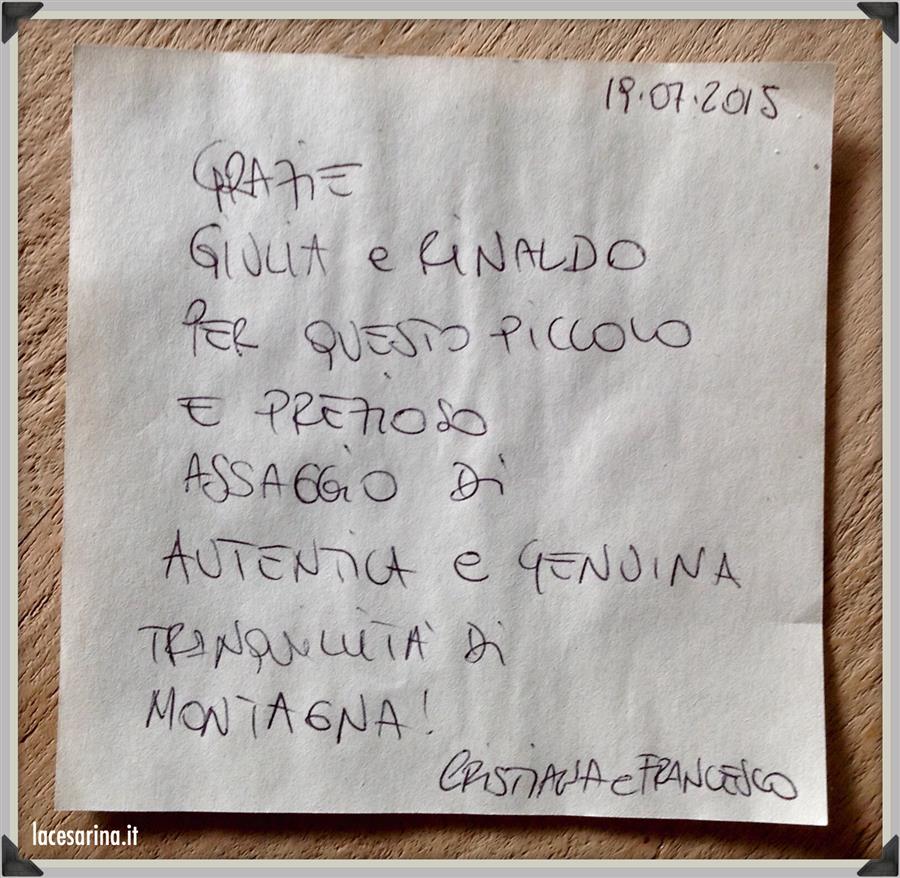 19.07.2015
GRAZIE
GIULIA e RINALDO
PER QUESTO PICCOLO
E PREZIOSO
ASSAGGIO Di
AUTENTICA e GENUINA
TRANQUILLITA' Di
MONTAGNA!
CRISTIANA e FRANCESCO
lacesarina.it